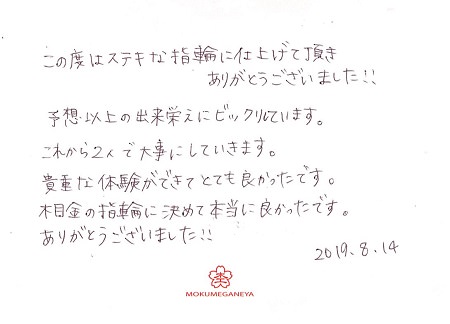 この度はステキな指輪に仕上げて頂き
ありがとうございました!!
予想以上の出来栄えにビックリしています。
これから2人で大事にしていきます。
貴重な体験ができてとても良かったです。
木目金の指輪に決めて本当に良かったです。
ありがとうございました!!
2019.8.14
MOKUMEGANEYA